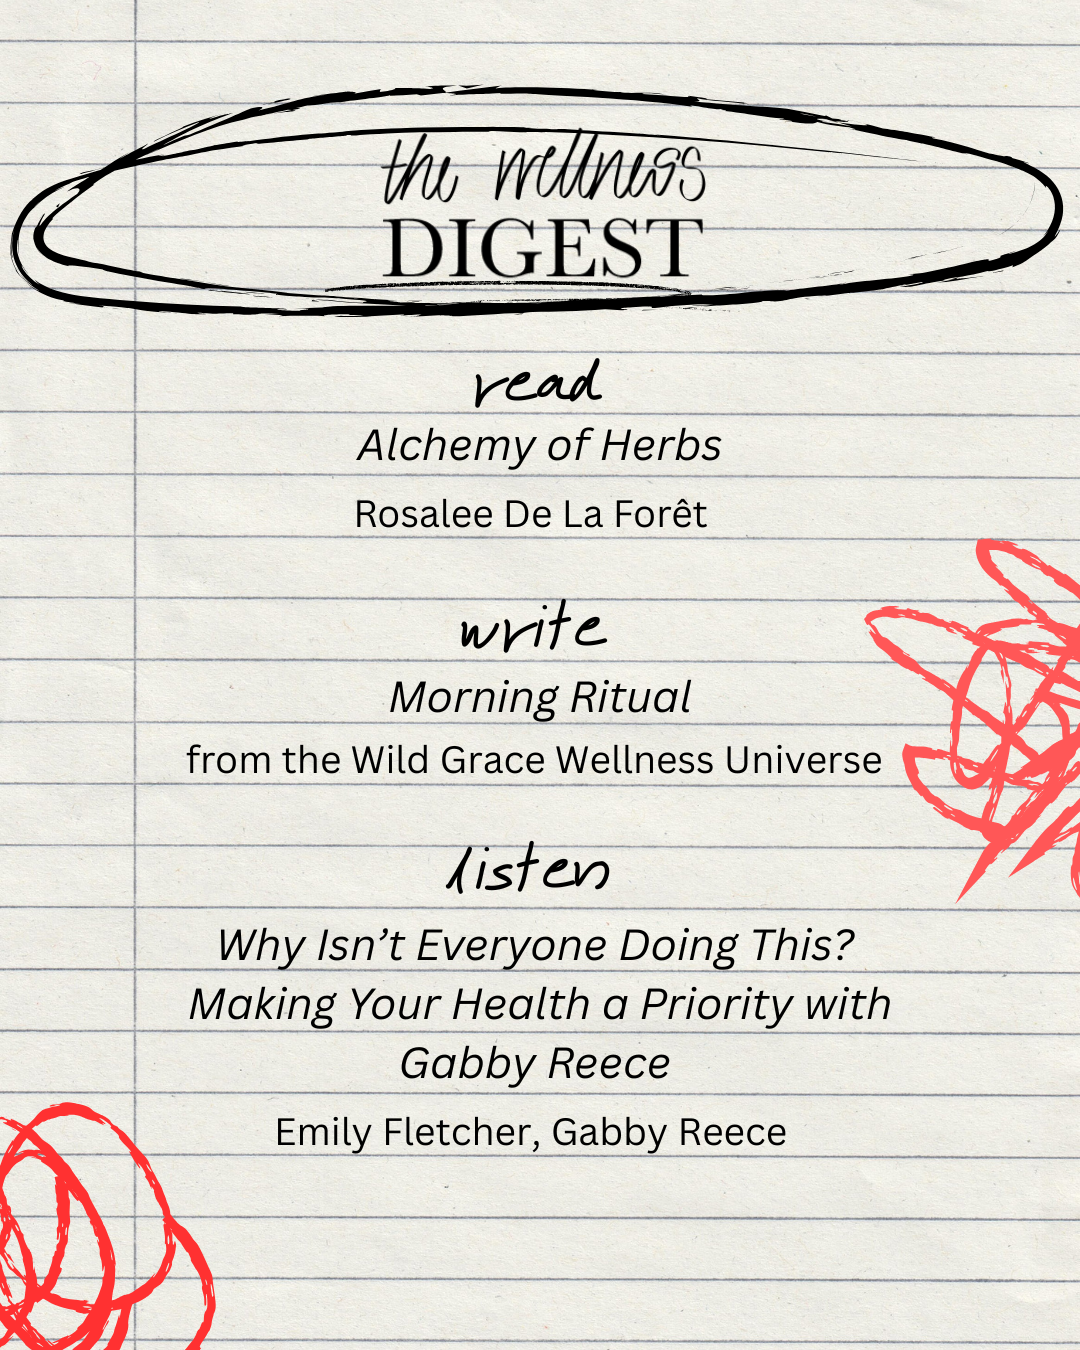 the wellness
DIGEST
read
Alchemy of Herbs
Rosalee De La Forêt
write
Morning Ritual
from the Wild Grace Wellness Universe
listen
Why Isn’t Everyone Doing This?
Making Your Health a Priority with
Gabby Reece
Emily Fletcher, Gabby Reece